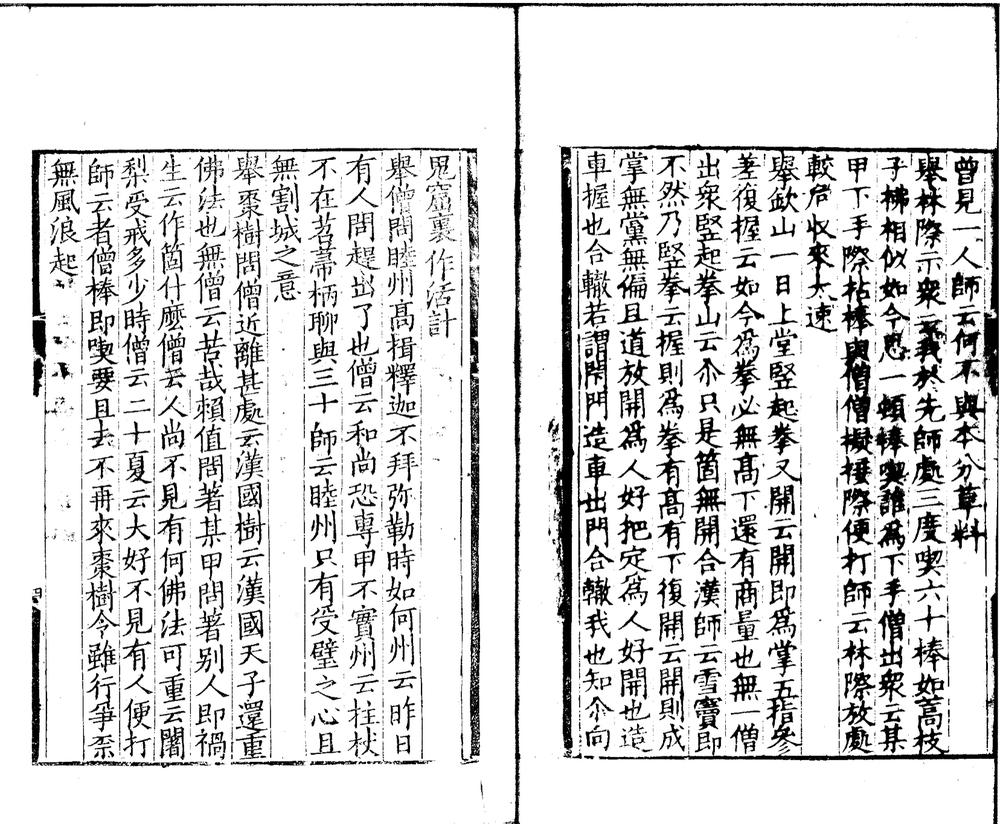 曾見一人師云何不與本分草料
舉林際示衆云我於先師處三度喫六十棒如蒿枝
子拂相似如今思一頓棒喫誰爲下手僧出衆云某
甲下手際拈棒與僧僧擬接際便打師云林際放處
較危收來太速
舉欽山一日上堂竪起拳又開云開即爲掌五指參
差復握云如今爲拳必無高下還有商量也無一僧
出衆竪起拳山云尒只是箇無開合漢師云雪竇即
不然乃竪拳云握則爲拳有高有下復開云開則成
掌無黨無偏且道放開爲人好把定爲人好開也造
車握也合轍若謂閉門造車出門合轍我也知尒向
鬼窟裏作活計
舉僧問睦州高揖釋迦不拜弥勒時如何州云昨日
有人問趕出了也僧云和尚恐專甲不實州云柱杖
不在苕箒柄聊與三十師云睦州只有受璧之心且
無割城之意
舉棗樹問僧近離甚處云漢國樹云漢國天子還重
佛法也無僧云苦哉賴值問著某甲問著别人即禍
生云作箇什麽僧云人尚不見有何佛法可重云闍
梨受戒多少時僧云二十夏云大好不見有人便打
師云者僧棒即喫要且去不再來棗樹令雖行爭柰
無風浪起